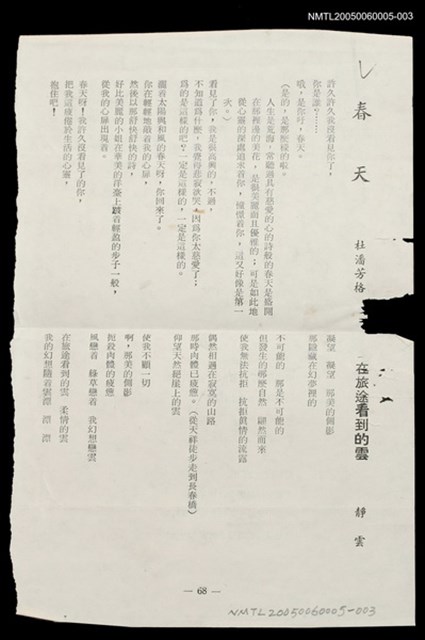 NMTL20050060005-003
春天
杜潘芳格
許久許久我沒看見你了,
你是誰?………
哦,是你呀,春天。
(是的,是那麼樣的啦。
人生是荒海,常聽過具有慈愛的心的詩般的春天是盛開
在那裡邊的美花,是很美麗而且優雅的;可是如此地
從心靈的深處追求着你,憧憬着你,這又好像是第一
次。)
看見了你,我是很高興的,不過,
不知道爲什麼,我覺得悲寂欲哭,因爲你太慈愛了;
爲的是這樣的吧?一定是這樣的,一定是這樣的。
圍着太陽與和風的春天呀,你回來了。
你在輕輕地敲着我的心扉,
然後以那舒快舒快的詩,
好比美麗的小姐在華美的洋臺上踏着輕盈的步子一般,
從我的心扉出現着。
春天呀!我許久沒看見了的你,
把我這疲倦於生活的心靈,
抱住吧!
在旅途看到的雲
靜雲
凝望 凝望 那美的倩影
那隱藏在幻夢裡的
不可能的 那是不可能的
但發生的那麼自然 顯然而來
使我無法抗拒 抗拒眞情的流露
偶然相遇在寂寞的山路
那時肉體已疲憊。(從天祥徒步走到長春橋)
仰望天然絕崖上的雲
使我不顧一切
啊,那美的倩影
扼殺肉體的疲憊
風戀着 綠草戀着 我幻想戀雲
在旅途看到的雲 柔情的雲
我的幻想隨着雲漂 漂 漂
— 68 —
NMTL20050060005-003